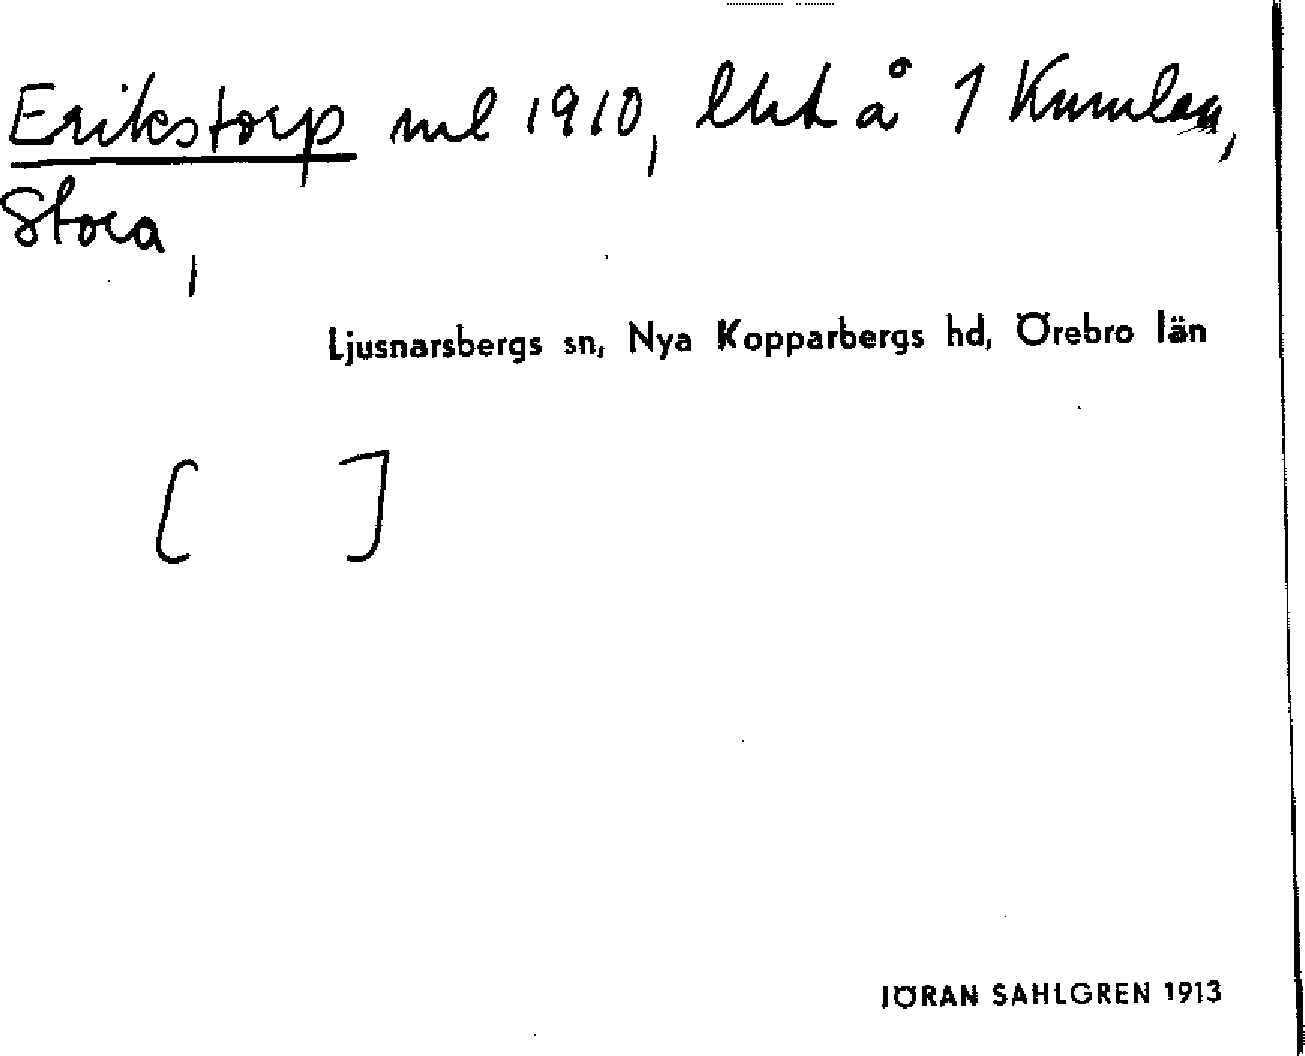 Erikstorp ml 1910, lht å 1 Kumlan,
Stora,
Ljusnarsbergs sn, Nya Kopparbergs hd, Örebro län
[ ]
JÖRAN SAHLGREN 1913